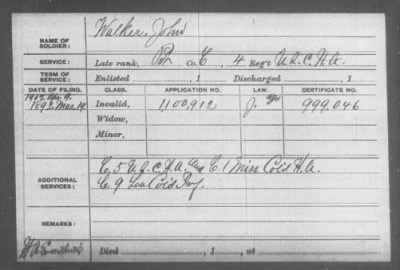 NAME OF SOLDIER: Walker, John
SERVICE: Late rank, Co. C, 4 Reg't U.S.C.H.A.
TERM OF SERVICE: Enlisted , 1 Discharged , 1
DATE OF FILING. CLASS. APPLICATION NO. LAW. CERTIFICATE NO.
1892 Mar. 19. Invalid, 1100,912 J. 999,046
Widow,
Minor,
ADDITIONAL SERVICES: C. 5 U.S.C.H.A. and C. 1 Miss Col'd H.A.
C. 9 Lou Col'd Inf.
REMARKS:
Died , 1 , at